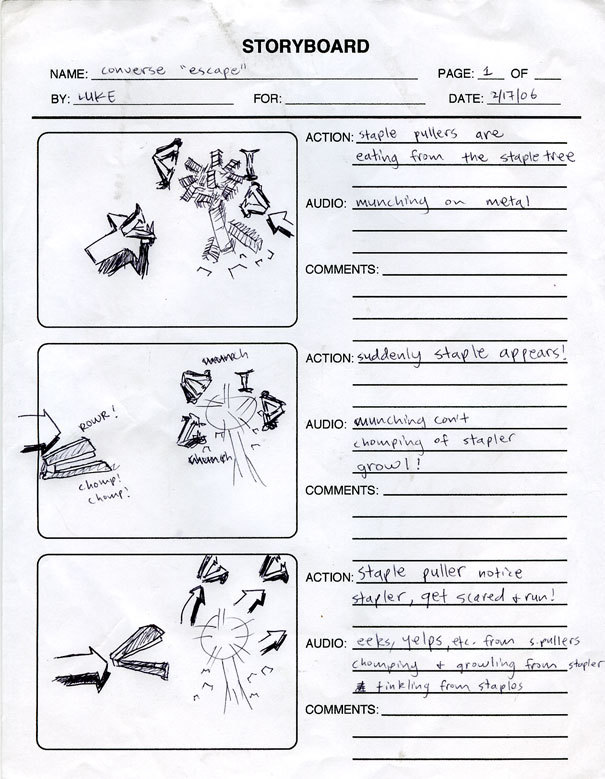 STORYBOARD
NAME: converse "escape" PAGE: 1 OF
BY: LUKE FOR: DATE: 2/17/06
ACTION: staple pullers are
eating from the staple tree
AUDIO: munching on metal
COMMENTS:
munch
ROWR!
chomp!
chomp!
ACTION: suddenly staple appears!
AUDIO: munching con't
chomping of stapler
growl!
COMMENTS:
ACTION: Staple puller notice
stapler, get scared + run!
AUDIO: eeks, yelps, etc. from s.pullers
chomping & growling from stapler
tinkling from staples
COMMENTS: